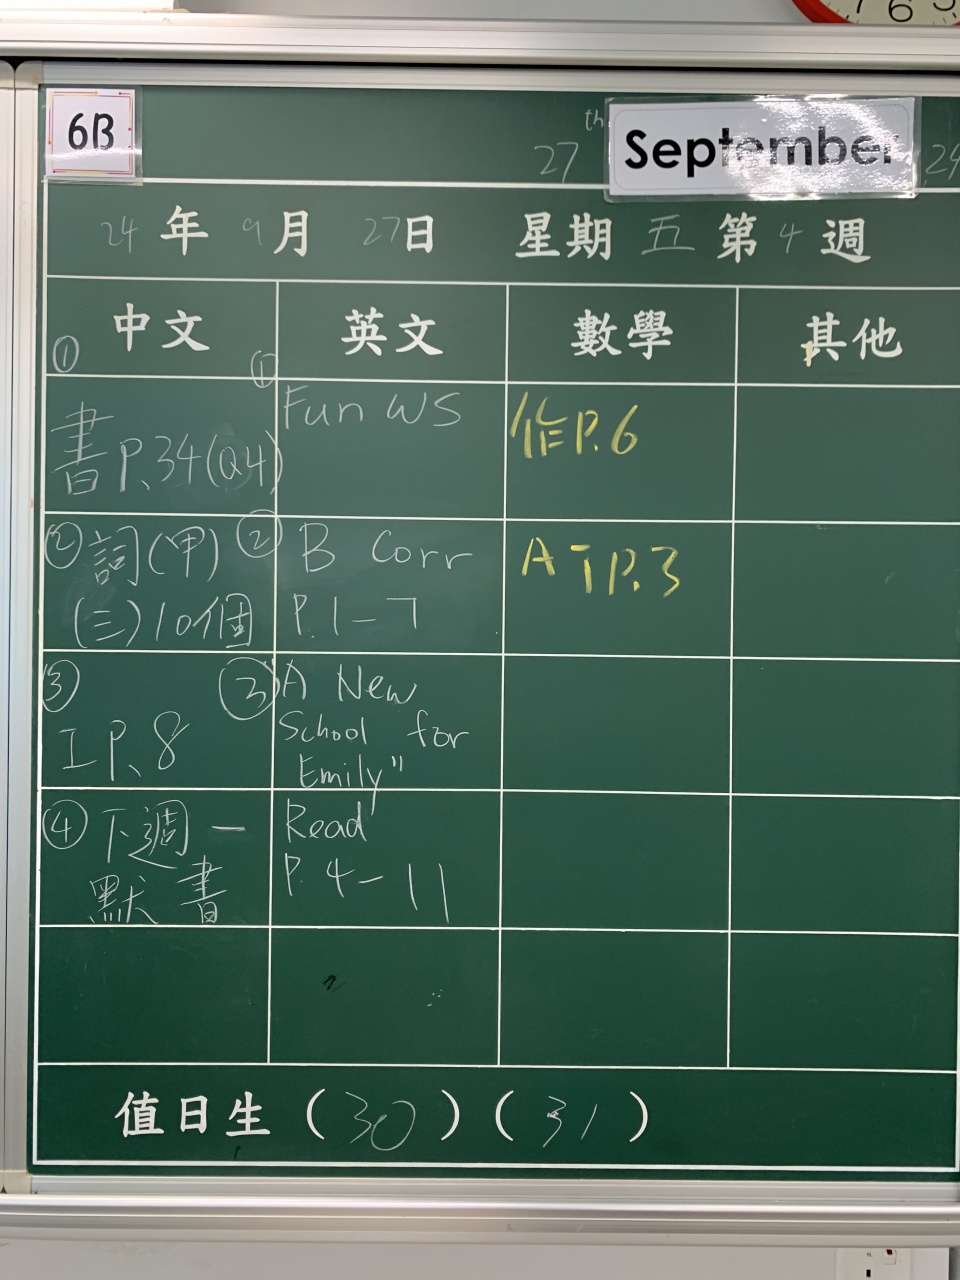 6B
27th September 24
24年9月27日 星期五第4週
中文 英文 數學 其他
① 書P.34(Q4)
① Fun WS
作P.6
② 詞(甲)
(三)10個
② B Corr
P.1-7
A T P.3
③ I P.8
③ A New
School for
Emily"
④ 下週一
默書
Read
P. 4-11
值日生(30)(31)